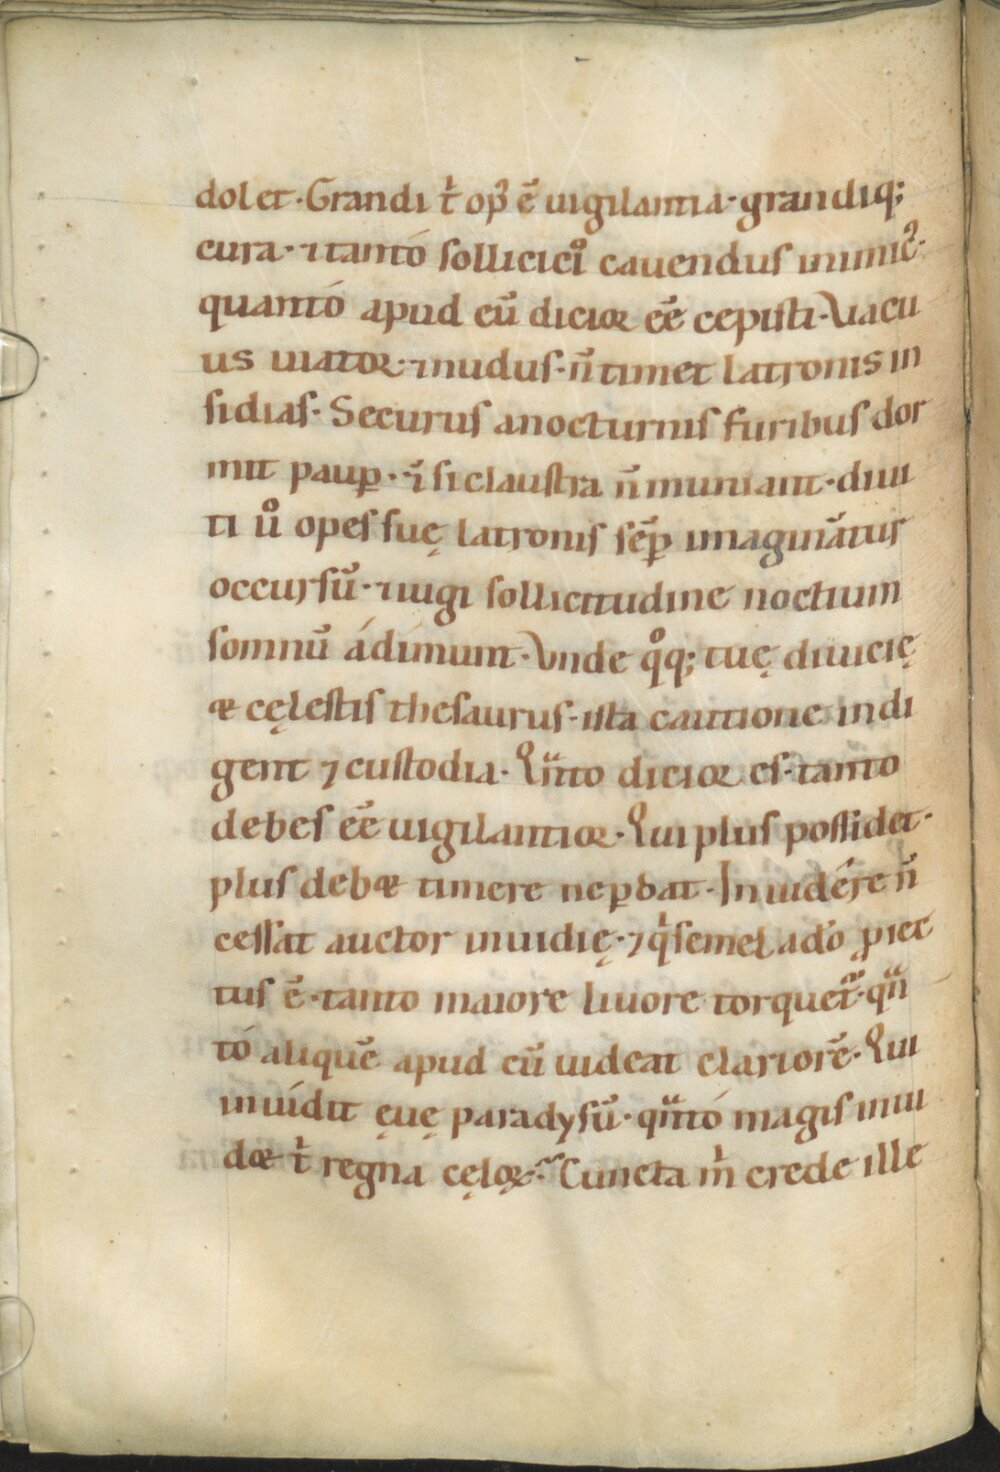 dolet·Grandi t̓ op᷒ ē uigilantia·grandiq;
cura·⁊tantó sollicici᷒ cauendus inimic᷒·
quantó apud eū dicior ēē cepisti·Vacu
us uiator·⁊nudus·n̄ timet latronis in
sidias·Securus anocturnis furibus dor
mit paup̲·⁊̄ si claustra n̄ muniant·diui
ti ů opes suę latronis sēp̲ imaginātus
occursū·⁊iugi sollicitudine noctium
somnū ádimunt·Vnde qͦq; tuę diuicię
& cęlestis thesaurus·ista cautione indi
gent ⁊ custodia·Qͣnto dicior es·tanto
debes ēē uigilantior·Qui plus possidet·
plus deb& timere nep̲dat·Inuidére n̄
cessat auctor inuidię·⁊qͥsemel ad̓o ꝓiec
tus ē·tanto maiore liuore torquet᷑·qͣn
tó aliquē apud eū uideat clariorē·Qui
inuídit ęuę paradysū·qͣntó magis inui
d& t̓ regna cęloꝝ·Cuncta m̓ crede ille